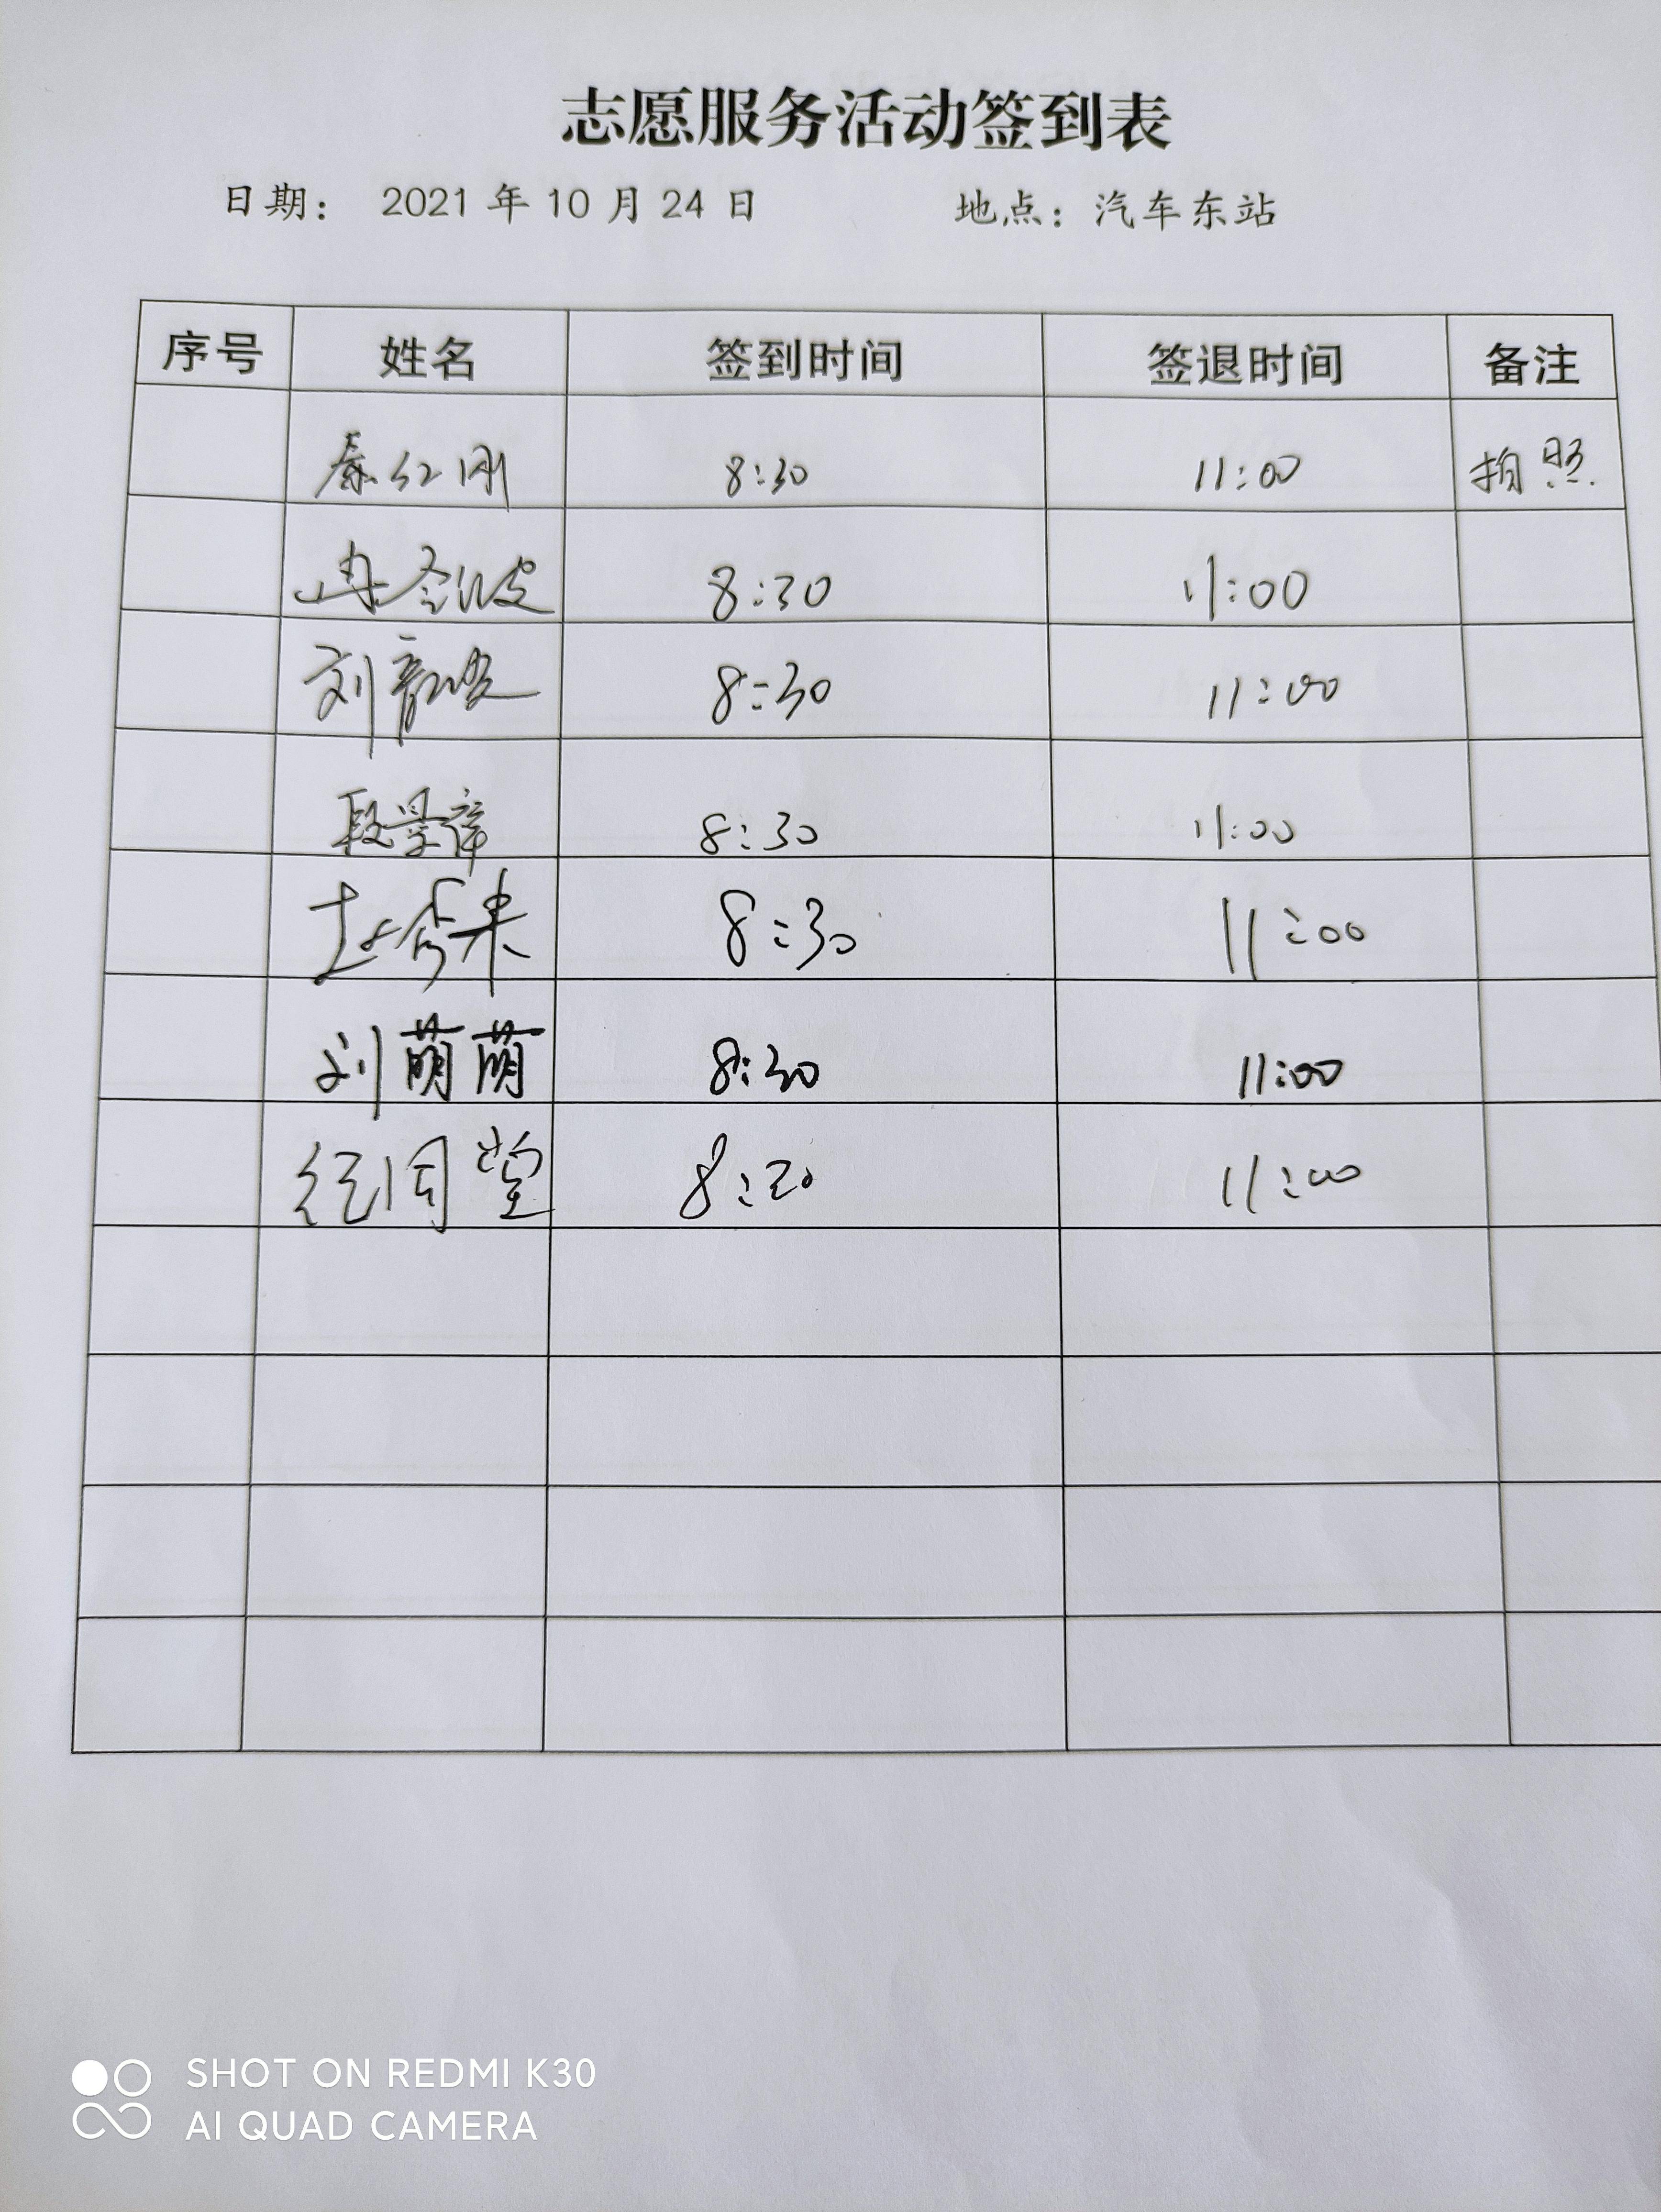 志愿服务活动签到表
日期： 2021 年 10 月 24 日 地点：汽车东站
序号 姓名 签到时间 签退时间 备注
秦红刚 8:30 11:00 拍照
冉冬波 8:30 11:00
刘 8:30 11:00
段景 8:30 11:00
赵秀来 8:30 11:00
刘萌萌 8:30 11:00
8:30 11:00
SHOT ON REDMI K30
AI QUAD CAMERA